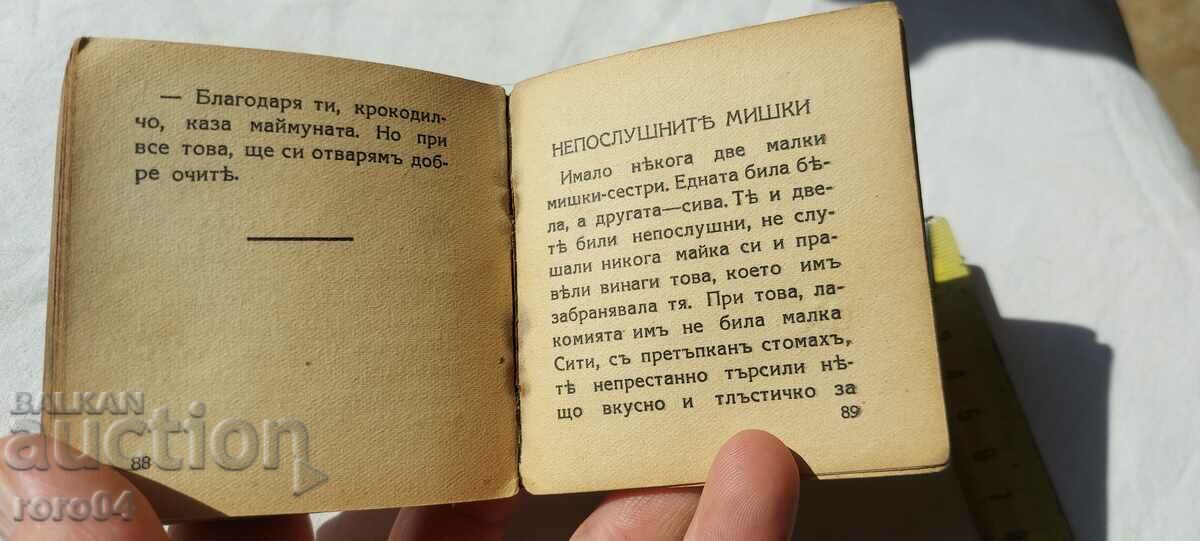 — Благодаря ти, крокодил-
чо, каза маймуната. Но при
все това, ще си отварямъ доб-
ре очитѣ.
88
НЕПОСЛУШНИТѢ МИШКИ
Имало нѣкога две малки
мишки-сестри. Едната била бѣ-
ла, а другата—сива. Тѣ и две-
тѣ били непослушни, не слу-
шали никога майка си и пра-
вѣли винаги това, което имъ
забранявала тя. При това, ла-
комията имъ не била малка
Сити, съ претъпканъ стомахъ,
тѣ непрестанно търсили нѣ-
що вкусно и тлъстичко за
89
BALKAN
auction
roro04